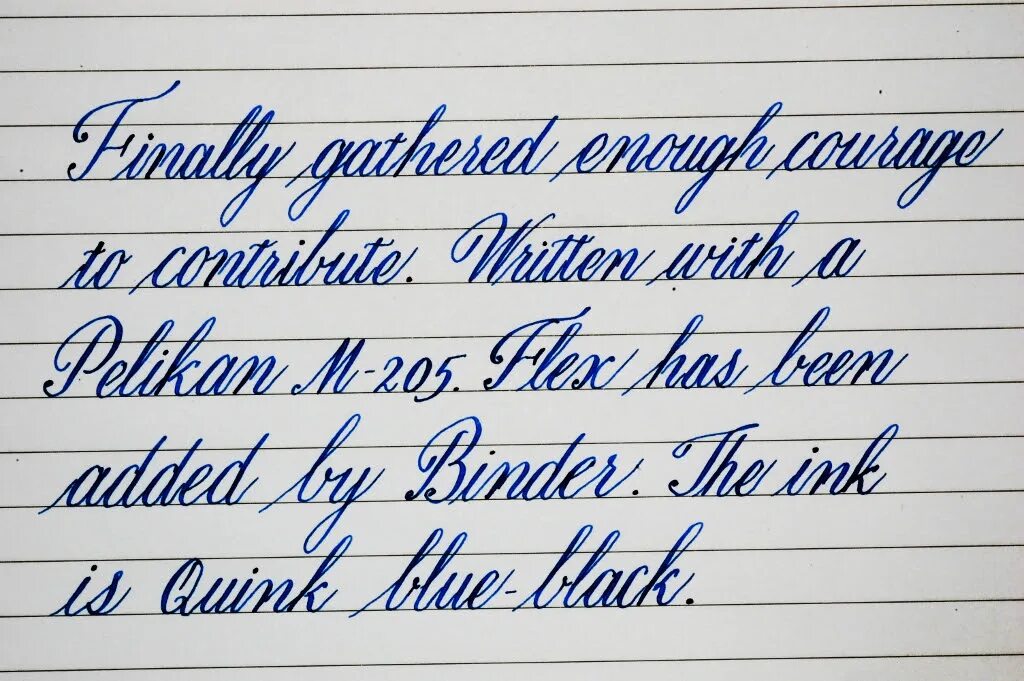 Finally gathered enough courage
to contribute. Written with a
Pelikan M-205. Flex has been
added by Binder. The ink
is Quink blue-black.